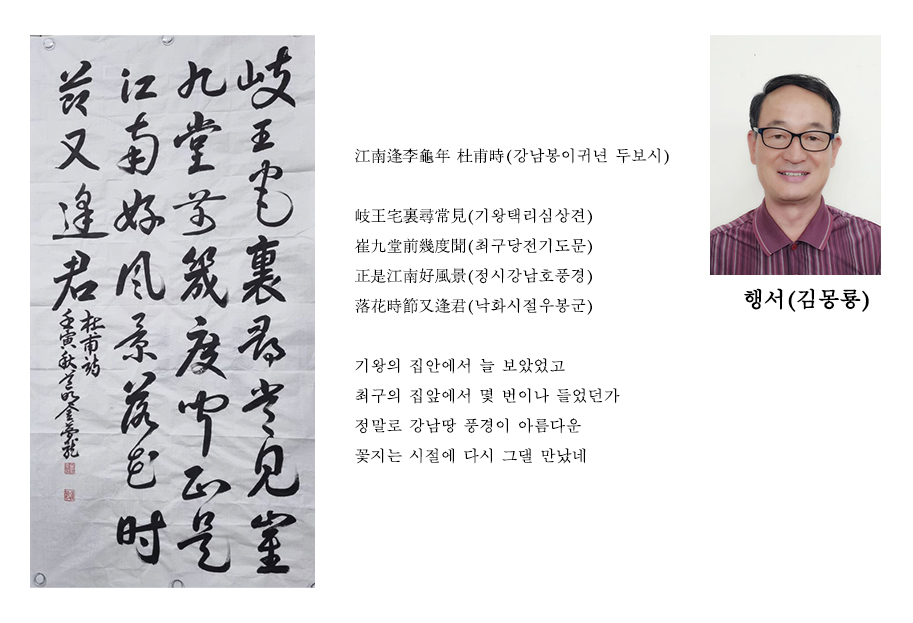 岐王宅裏尋常見崔
九堂前幾度聞正是
江南好風景落花时
節又逢君
杜甫詩
壬寅秋芸明金夢龍
江南逢李龜年 杜甫時(강남봉이귀년 두보시)
岐王宅裏尋常見(기왕택리심상견)
崔九堂前幾度聞(최구당전기도문)
正是江南好風景(정시강남호풍경)
落花時節又逢君(낙화시절우봉군)
기왕의 집안에서 늘 보았었고
최구의 집앞에서 몇 번이나 들었던가
정말로 강남땅 풍경이 아름다운
꽃지는 시절에 다시 그댈 만났네
행서(김몽룡)